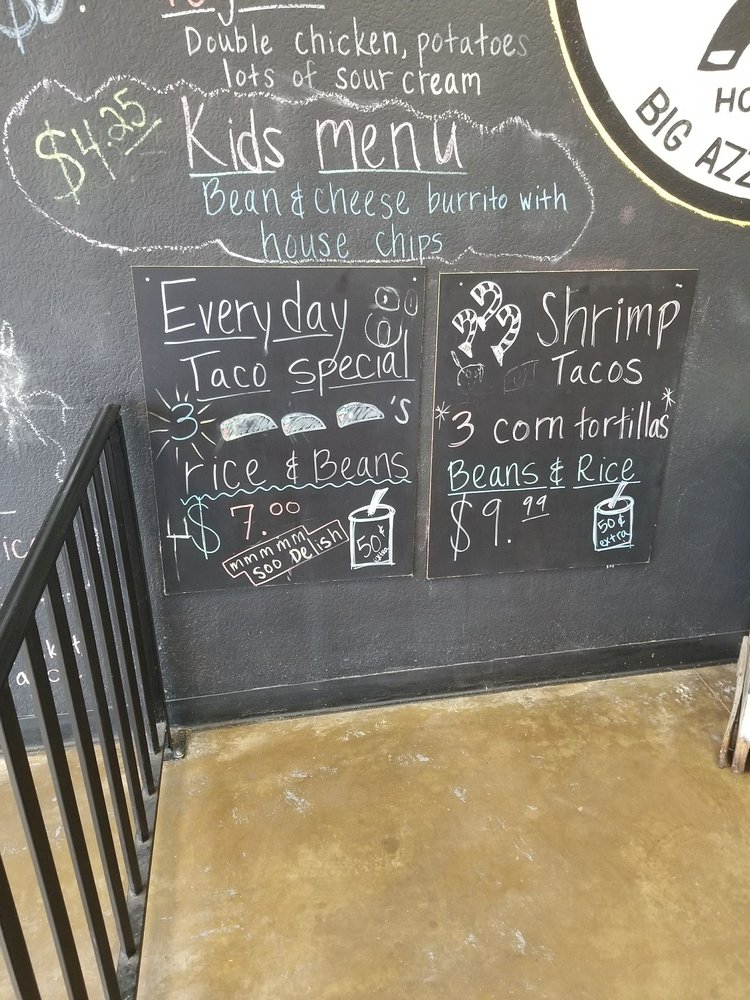 Double chicken, potatoes
lots of sour cream
$4.25
Kids menu
Bean & cheese burrito with
house chips
HO
BIG AZZ
Everyday
Taco special
3 's
rice & Beans
$7.00
mmmmm
Soo Delish
50¢
extra
Shrimp
Tacos
*3 corn tortillas*
Beans & Rice
$9.99
50¢
extra